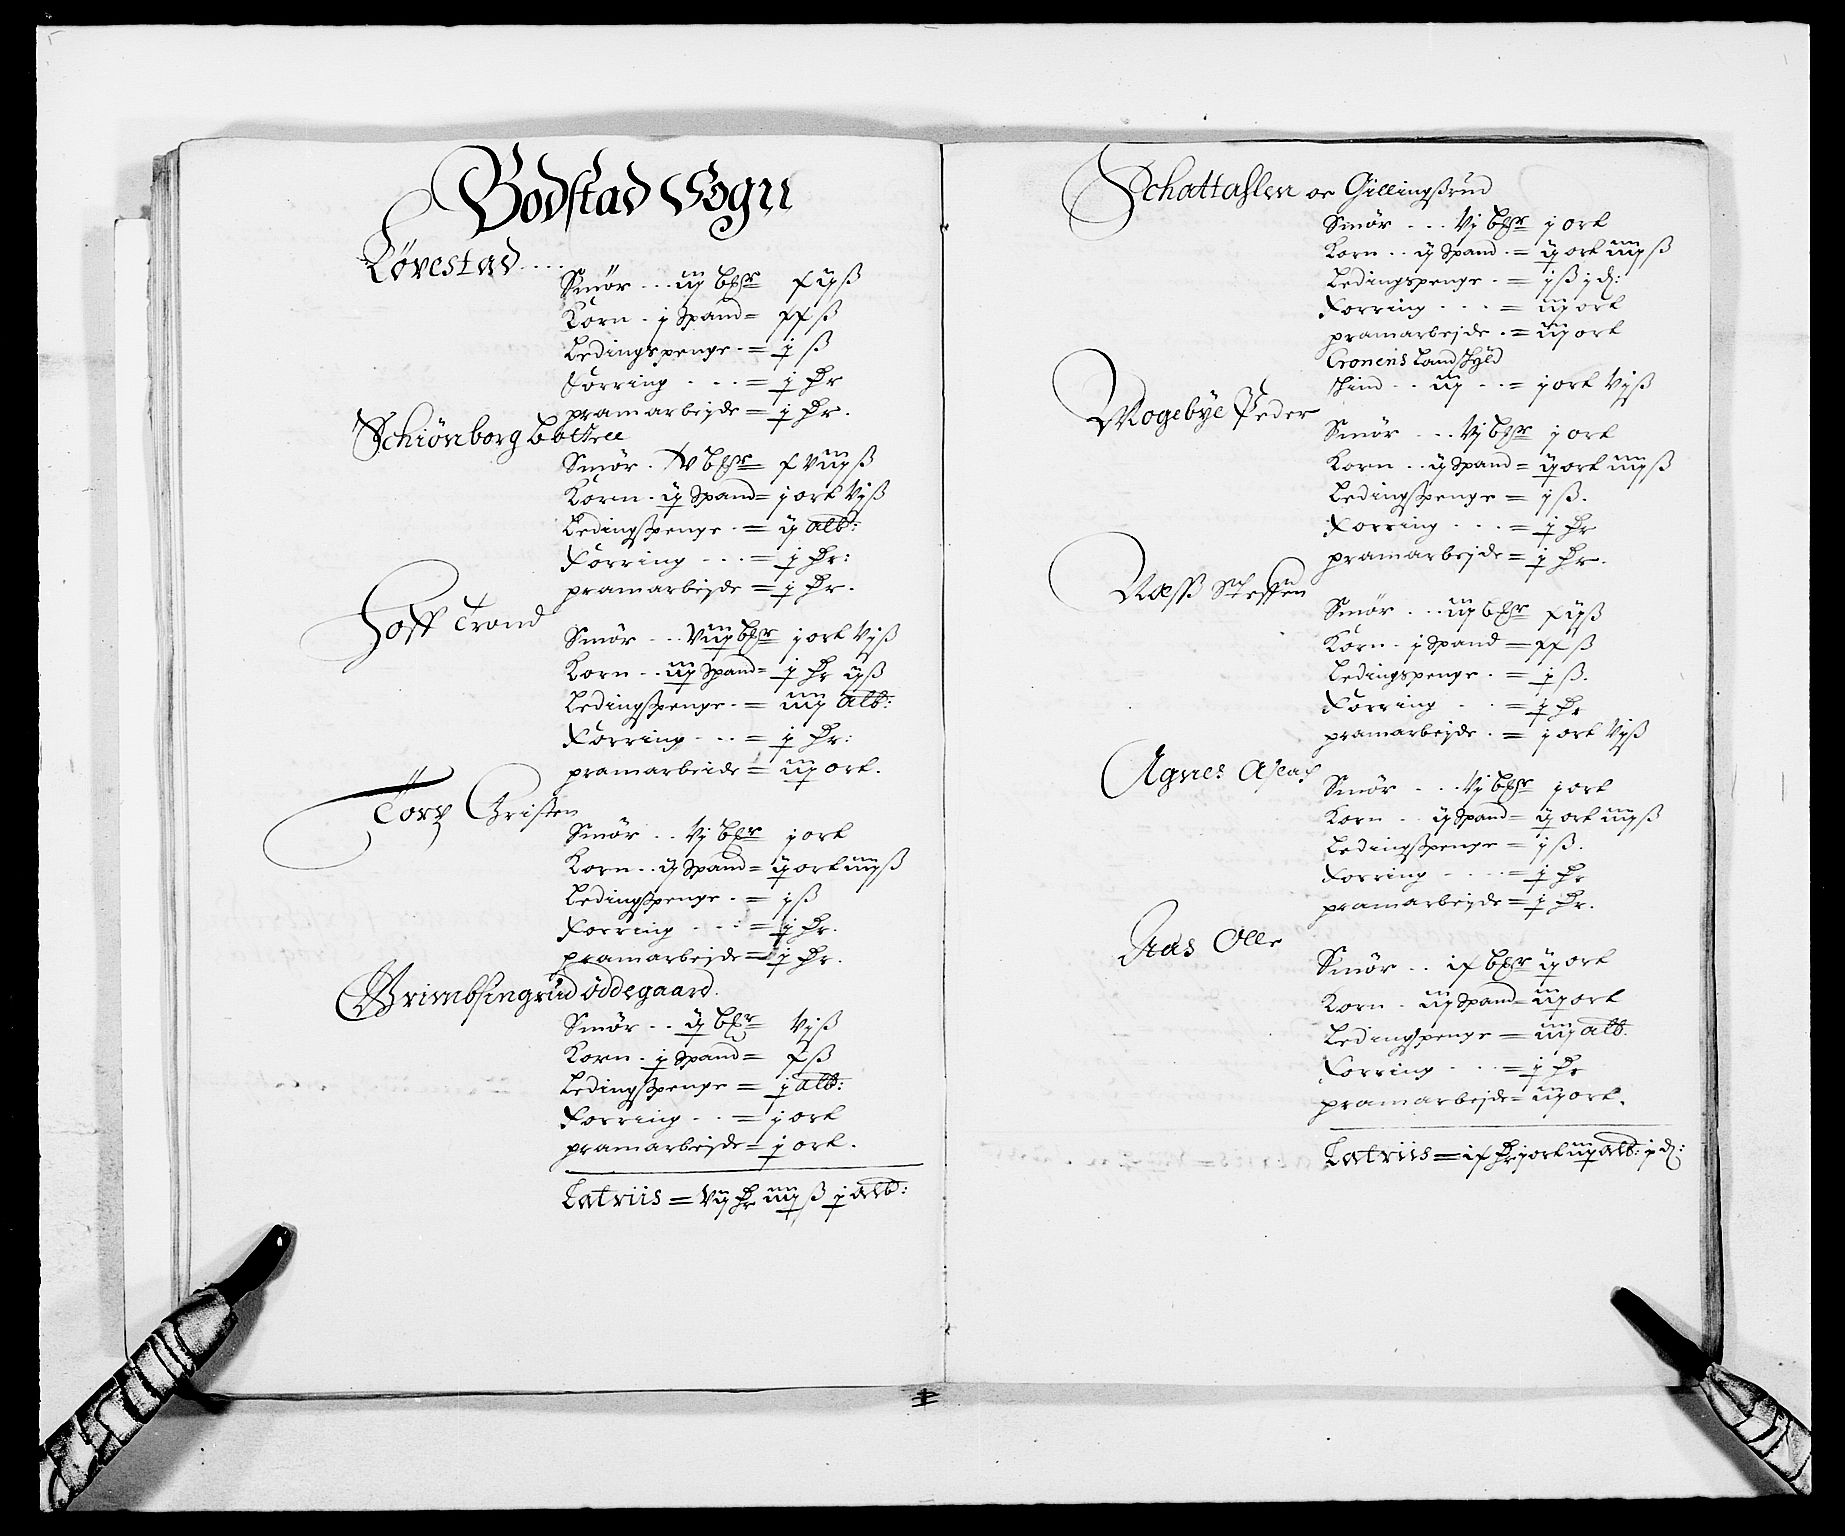 Bodstad Sogn
Løvestad....
Smör ... iiij bßr xijß
Korn . j Spand = xxß
Ledingspenge . = j ß
Forring . . . = j Dr
pramarbejde = j Dr.
Schiönborg Lottree
Smör . xv bßr = x viiij ß
Korn . ij Spand = j ort vjß
Ledingspenge . = ij alb:
Forring . . . = j Dr:
pramarbejde = j Dr.
Hoff Trond
Smör ... viiij bßr j ort vjß
Korn .. iiij Spand = j Dr ijß
Ledingspenge . = iiij alb:
Forring . . . = j Dr:
pramarbeide = iij ort.
Torp Christen
Smör .. vj bßr j ort
Korn .. ij Spand = ij ort iiijß
Ledingspenge . = jß
Forring . . . = j Dr.
pramarbejde = j Dr.
Grimbsingrud Öddegaard.
Smör .. ij bßr vjß
Korn . j Spand = xß
Ledingspenge = j alb:
Forring . . = j ort
pramarbejde = j ort.
Latriis = vij Dr iiij ß j alb:
Schattahlen oc Gillingßrud
Smör ... vj bßr j ort
Korn .. ij Spand . = ij ort iiijß
Ledingspenge . = jß j d:
Forring . . . = iij ort
pramarbejde . = iij ort
Cronens Landskyld
skind .. iij .. = j ort vjß
Mogebye Peder
Smör ... vj bßr j ort
Korn .. ij Spand = ij ort iiijß
Ledingspenge = jß.
Forring . . . = j Dr
pramarbejde = j Dr.
Næss
Smör ... iiij bßr xijß
Korn . j Spand = xxß
Ledingspenge . = jß.
Forring . . = j Dr
pramarbejde . = j ort vjß
Agnes Aslach
Smör ... vj bßr j ort
Korn .. ij Spand = ij ort iiijß
Ledingspenge = jß.
Forring . . . = j Dr
pramarbejde = j Dr.
Aas Olle
Smör .. ix bßr ij ort
Korn . iij Spand = iij ort
Ledingspenge = iiij alb.
Forring . . . = j Dr
pramarbejde = iij ort.
Latriis = ix Dr j ort iij alb: j d: